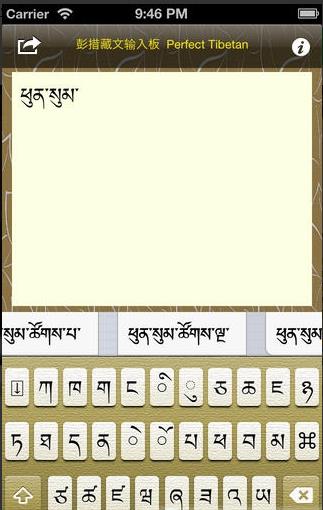 Carrier 9:46 PM
彭措藏文输入板 Perfect Tibetan
ཕུན་སུམ་
སུམ་ཚོགས་པ་ ཕུན་སུམ་ཚོགས་ལྔ་ ཕུན་སུམ
ཀ ཁ ག ང ི ུ ཅ ཆ ཇ ཉ
ཏ ཐ ད ན ེ ོ པ ཕ བ མ ⌘
ཙ ཚ ཛ ཝ ཞ ཟ འ ཡ